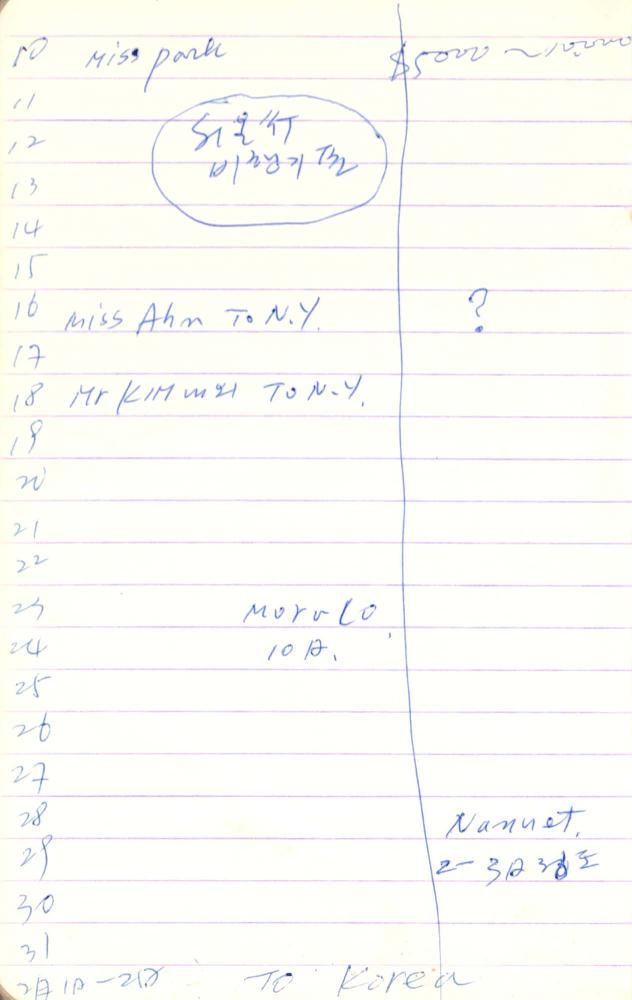 10 Miss park $5000 ~ 10000
11
12 서울行
13 비행기표
14
15
16 Miss Ahn To N.Y. ?
17
18 Mr KIM To N.Y.
19
20
21
22
23
24 10日.
25
26
27
28 Nanuet.
29 2-3日정도
30
31
2月1日-2日 To Korea